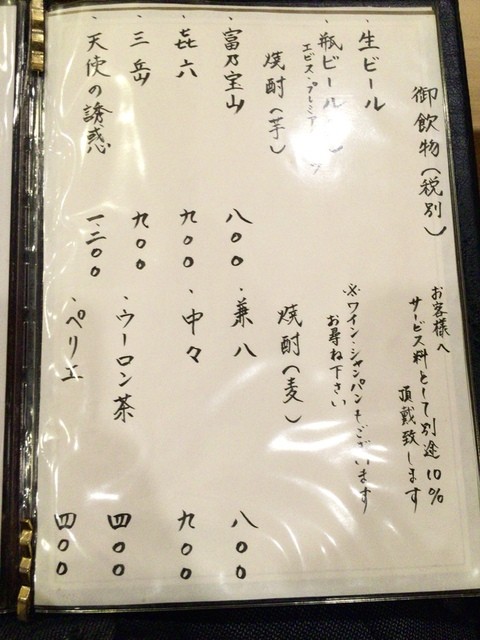 御飲物(税別)
お客様へ
サービス料として別途10%
頂戴致します
・生ビール
・瓶ビール
エビス・プレミアム
※ワイン・シャンパンもございます
お尋ね下さい
焼酎(芋)
・富乃宝山 八〇〇
・㐂六 九〇〇
・三岳 九〇〇
・天使の誘惑 一、三〇〇
焼酎(麦)
・兼八 八〇〇
・中々 九〇〇
・ウーロン茶 四〇〇
・ペリエ 四〇〇